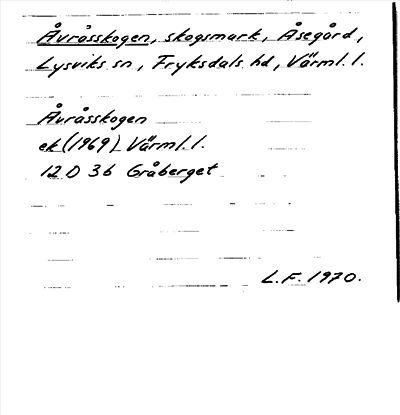 Åvråsskogen, skogsmark, Åsegård,
Lysviks sn, Fryksdals hd, Värml. l.
Åvråsskogen
ek (1969) Värml. l.
12 D 3b Gråberget
L.F. 1970.